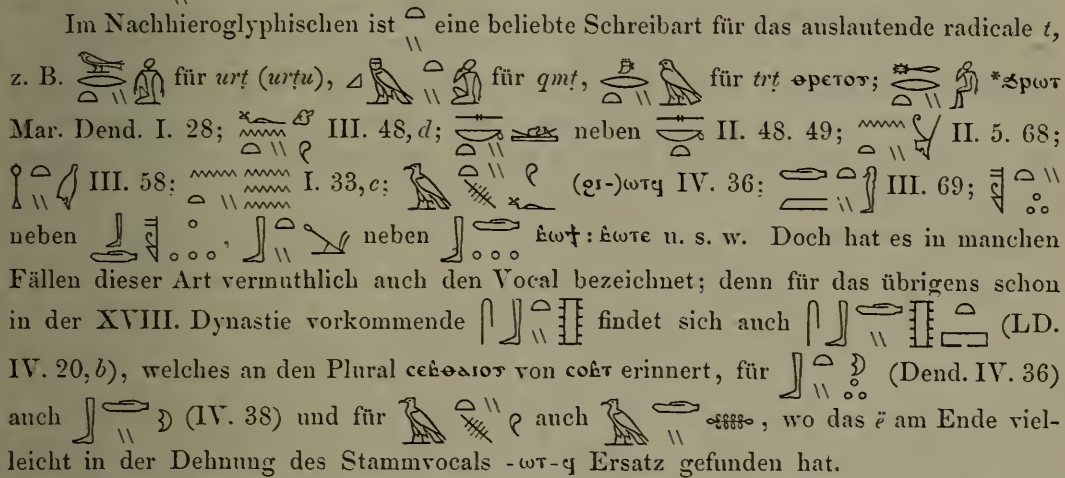 Im Nachhieroglyphischen ist eine beliebte Schreibart für das auslautende radicale t,
z. B. für urṭ (urṭu), für qmṭ, für trṭ ⲑⲣⲉⲧⲟⲩ; *ϧⲣⲱⲧ
Mar. Dend. I. 28; III. 48, d; neben II. 48. 49; II. 5. 68;
III. 58; I. 33, c; (ϩⲓ-)ⲱⲧϥ IV. 36; III. 69;
neben , neben ⲃⲱϯ : ⲃⲱⲧⲉ u. s. w. Doch hat es in manchen
Fällen dieser Art vermuthlich auch den Vocal bezeichnet; denn für das übrigens schon
in der XVIII. Dynastie vorkommende findet sich auch (LD.
IV. 20, b), welches an den Plural ⲥⲉⲃⲑⲁⲓⲟⲩ von ⲥⲟⲃⲧ erinnert, für (Dend. IV. 36)
auch (IV. 38) und für auch , wo das ĕ am Ende viel-
leicht in der Dehnung des Stammvocals -ⲱⲧ-ϥ Ersatz gefunden hat.